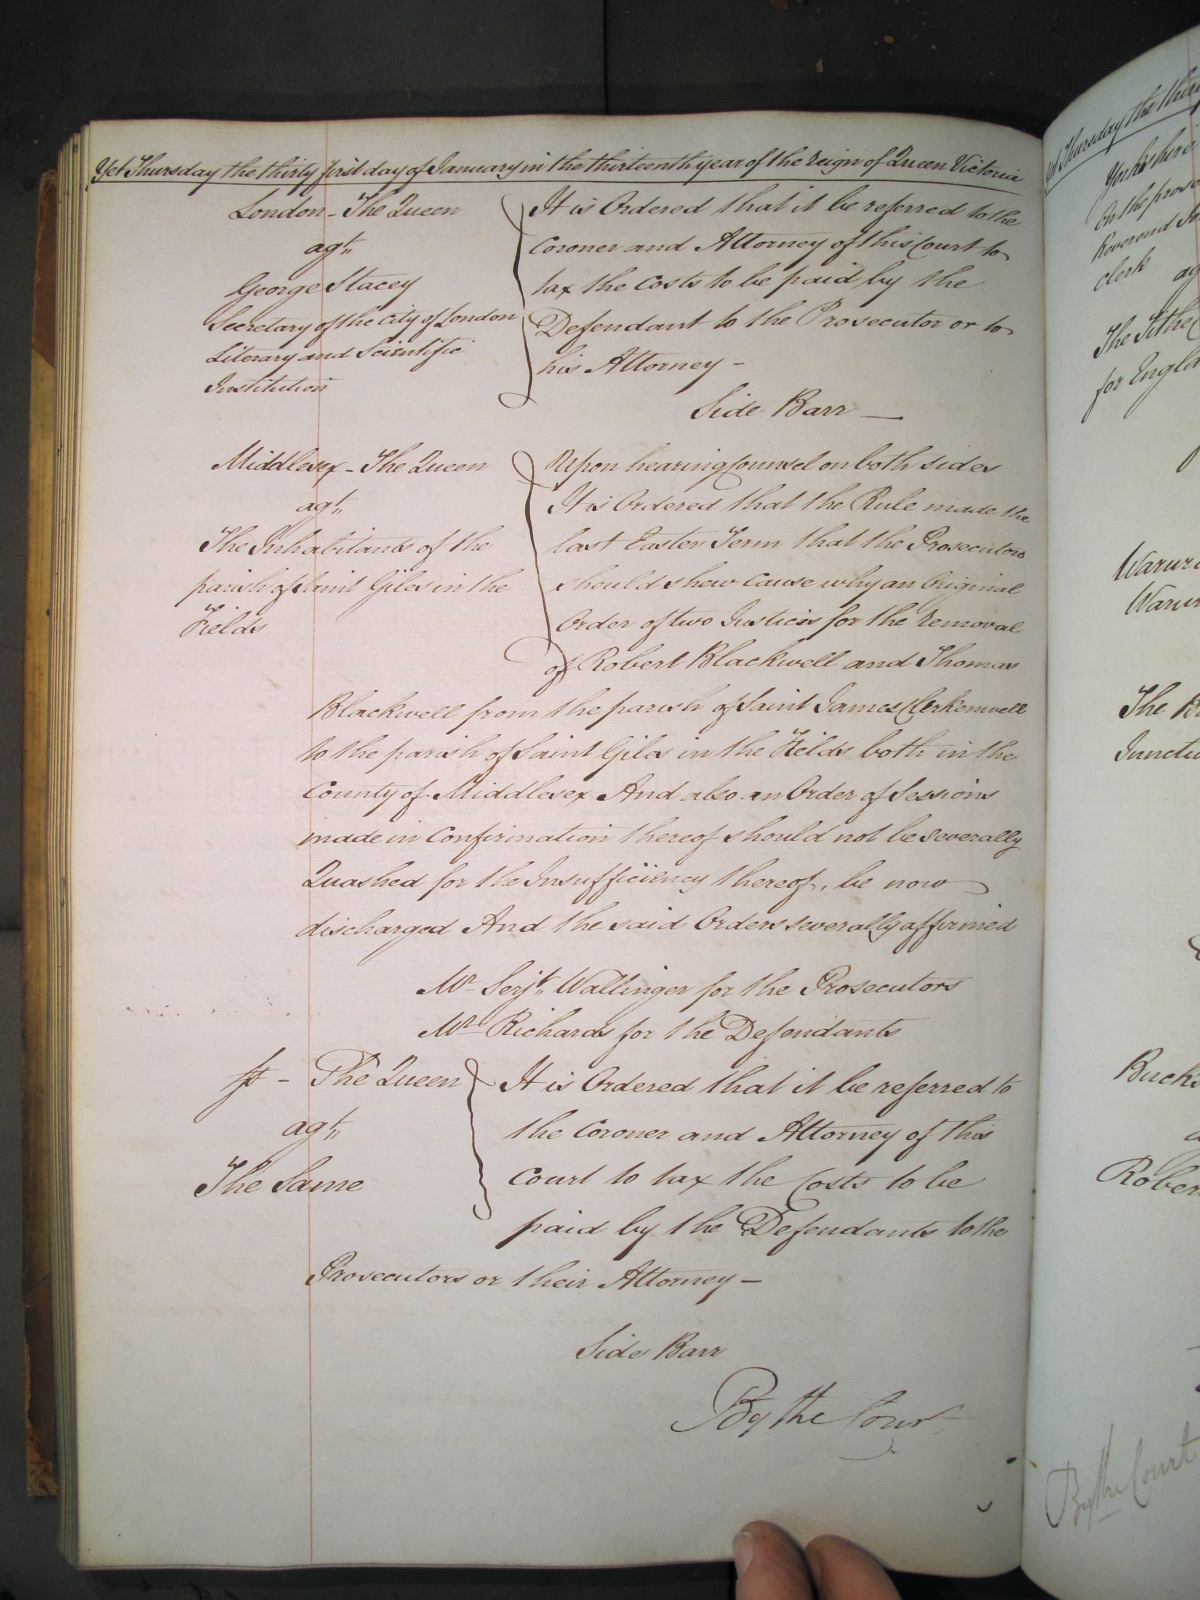 Yet Thursday the thirty first day of January in the thirteenth year of the Reign of Queen Victoria
London - The Queen
agt.
George Stacey
Secretary of the City of London
Literary and Scientific
Institution
It is Ordered that it be referred to the
Coroner and Attorney of this Court to
tax the Costs to be paid by the
Defendant to the Prosecutor or to
his Attorney -
Side Barr -
Middlesex - The Queen
agt.
The Inhabitants of the
parish of Saint Giles in the
Fields
Upon hearing Counsel on both sides
It is Ordered that the Rule made the
last Easter Term that the Prosecutors
should shew cause why an Original
Order of two Justices for the Removal
of Robert Blackwell and Thomas
Blackwell from the parish of Saint James Clerkenwell
to the parish of Saint Giles in the Fields both in the
County of Middlesex And also an Order of Sessions
made in Confirmation thereof should not be severally
Quashed for the Insufficiency thereof, be now
discharged And the said Orders severally affirmed
Mr. Serjt. Wallinger for the Prosecutors
Mr. Richards for the Defendants
The Queen
agt.
The Same
It is Ordered that it be referred to
the Coroner and Attorney of this
Court to tax the Costs to be
paid by the Defendants to the
Prosecutors or their Attorney -
Side Barr
By the Court
Thursday the
Yorkshire
On the
Reverend
clerk
The Tithe
for
The
Bucks
By the Court